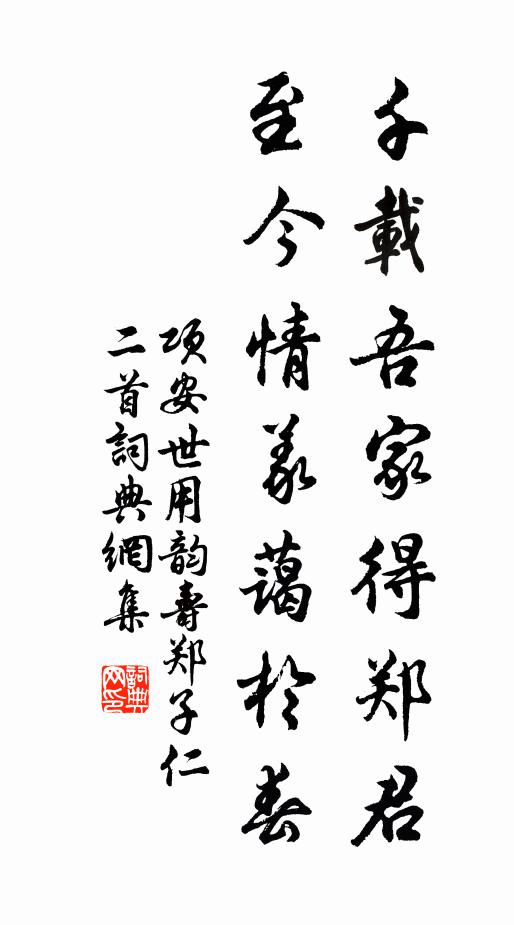 千載吾家得郑君
至今情義藹於春
项安世用韵壽郑子仁
二首詞典網集
詞典网印